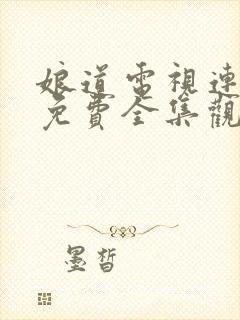 娘道電視連
免費全集觀
墨皙